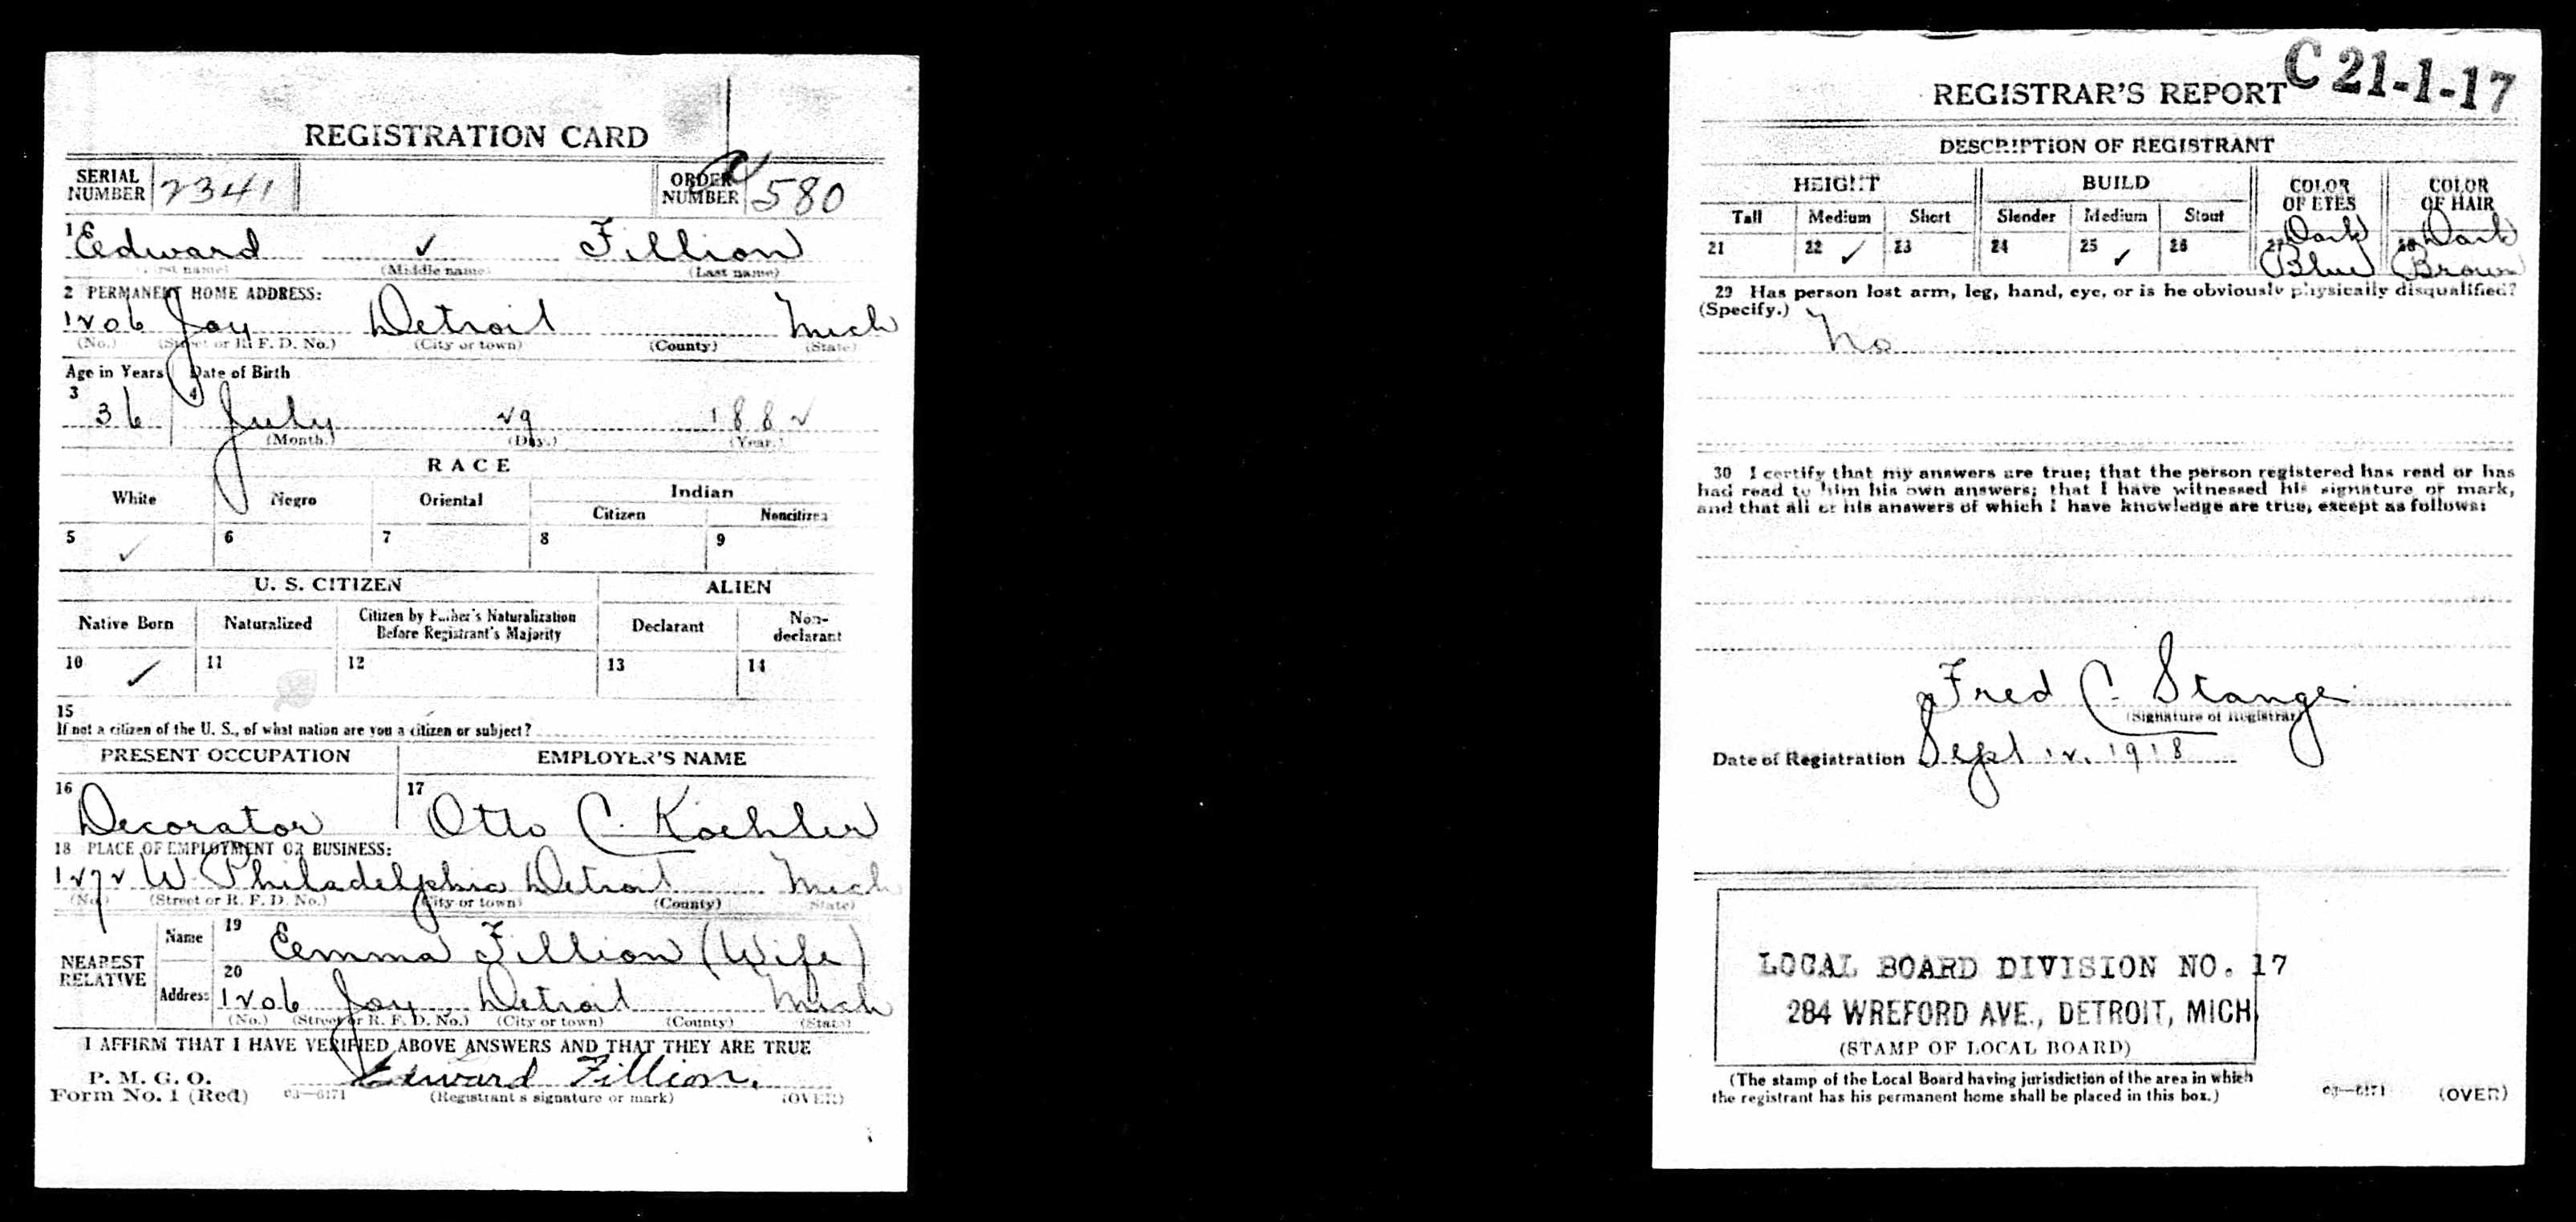 REGISTRATION CARD
SERIAL NUMBER 2341 ORDER NUMBER A 580
1 Edward ✓ Fillion
(First name) (Middle name) (Last name)
2 PERMANENT HOME ADDRESS:
1206 Joy Detroit Mich
(No.) (Street or R. F. D. No.) (City or town) (County) (State)
Age in Years Date of Birth
3 36 4 July 29 1882
(Month.) (Day.) (Year.)
RACE
White Negro Oriental Indian
Citizen Noncitizen
5 ✓ 6 7 8 9
U. S. CITIZEN ALIEN
Native Born Naturalized Citizen by Father's Naturalization Before Registrant's Majority Declarant Non-declarant
10 ✓ 11 12 13 14
15
If not a citizen of the U. S., of what nation are you a citizen or subject?
PRESENT OCCUPATION EMPLOYER'S NAME
16 Decorator 17 Otto C. Koehler
18 PLACE OF EMPLOYMENT OR BUSINESS:
1272 W Philadelphia Detroit Mich
(No.) (Street or R. F. D. No.) (City or town) (County) (State)
NEAREST RELATIVE Name 19 Emma Fillion (Wife)
Address 20 1206 Joy Detroit Mich
(No.) (Street or R. F. D. No.) (City or town) (County) (State)
I AFFIRM THAT I HAVE VERIFIED ABOVE ANSWERS AND THAT THEY ARE TRUE
P. M. G. O.
Form No. 1 (Red) 03—6171 Edward Fillion.
(Registrant's signature or mark) (OVER)
C 21-1-17
REGISTRAR'S REPORT
DESCRIPTION OF REGISTRANT
HEIGHT BUILD COLOR OF EYES COLOR OF HAIR
Tall Medium Short Slender Medium Stout
21 22 ✓ 23 24 25 ✓ 26 27 Dark Blue 28 Dark Brown
29 Has person lost arm, leg, hand, eye, or is he obviously physically disqualified?
(Specify.) No
30 I certify that my answers are true; that the person registered has read or has
had read to him his own answers; that I have witnessed his signature or mark,
and that all of his answers of which I have knowledge are true, except as follows:
Fred C. Stange
(Signature of Registrar)
Date of Registration Sept 12, 1918
LOCAL BOARD DIVISION NO. 17
284 WREFORD AVE., DETROIT, MICH.
(STAMP OF LOCAL BOARD)
(The stamp of the Local Board having jurisdiction of the area in which
the registrant has his permanent home shall be placed in this box.)
03—6171 (OVER)